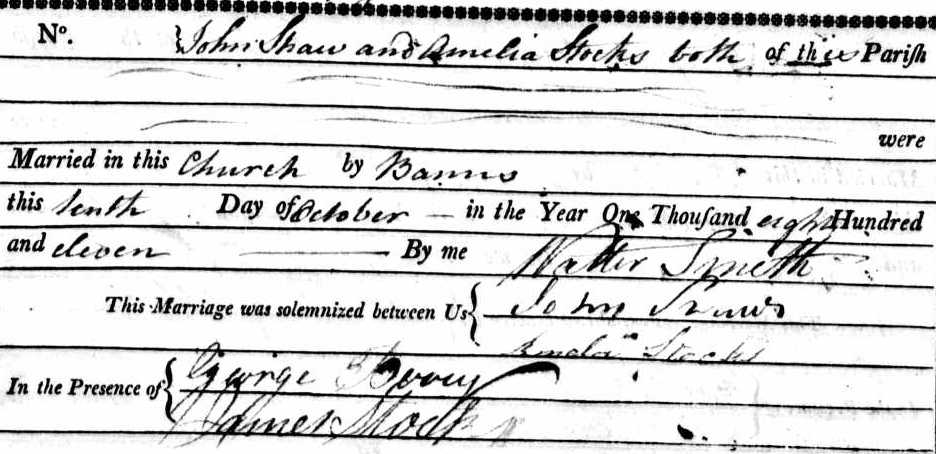 No. John Shaw and Amelia Stocks both of this Pariſh
were
Married in this Church by Banns
this tenth Day of October in the Year One Thouſand eight Hundred
and eleven By me Walter Smith
This Marriage was solemnized between Us John Shaw
Amelia Stocks
In the Presence of George
James Stock